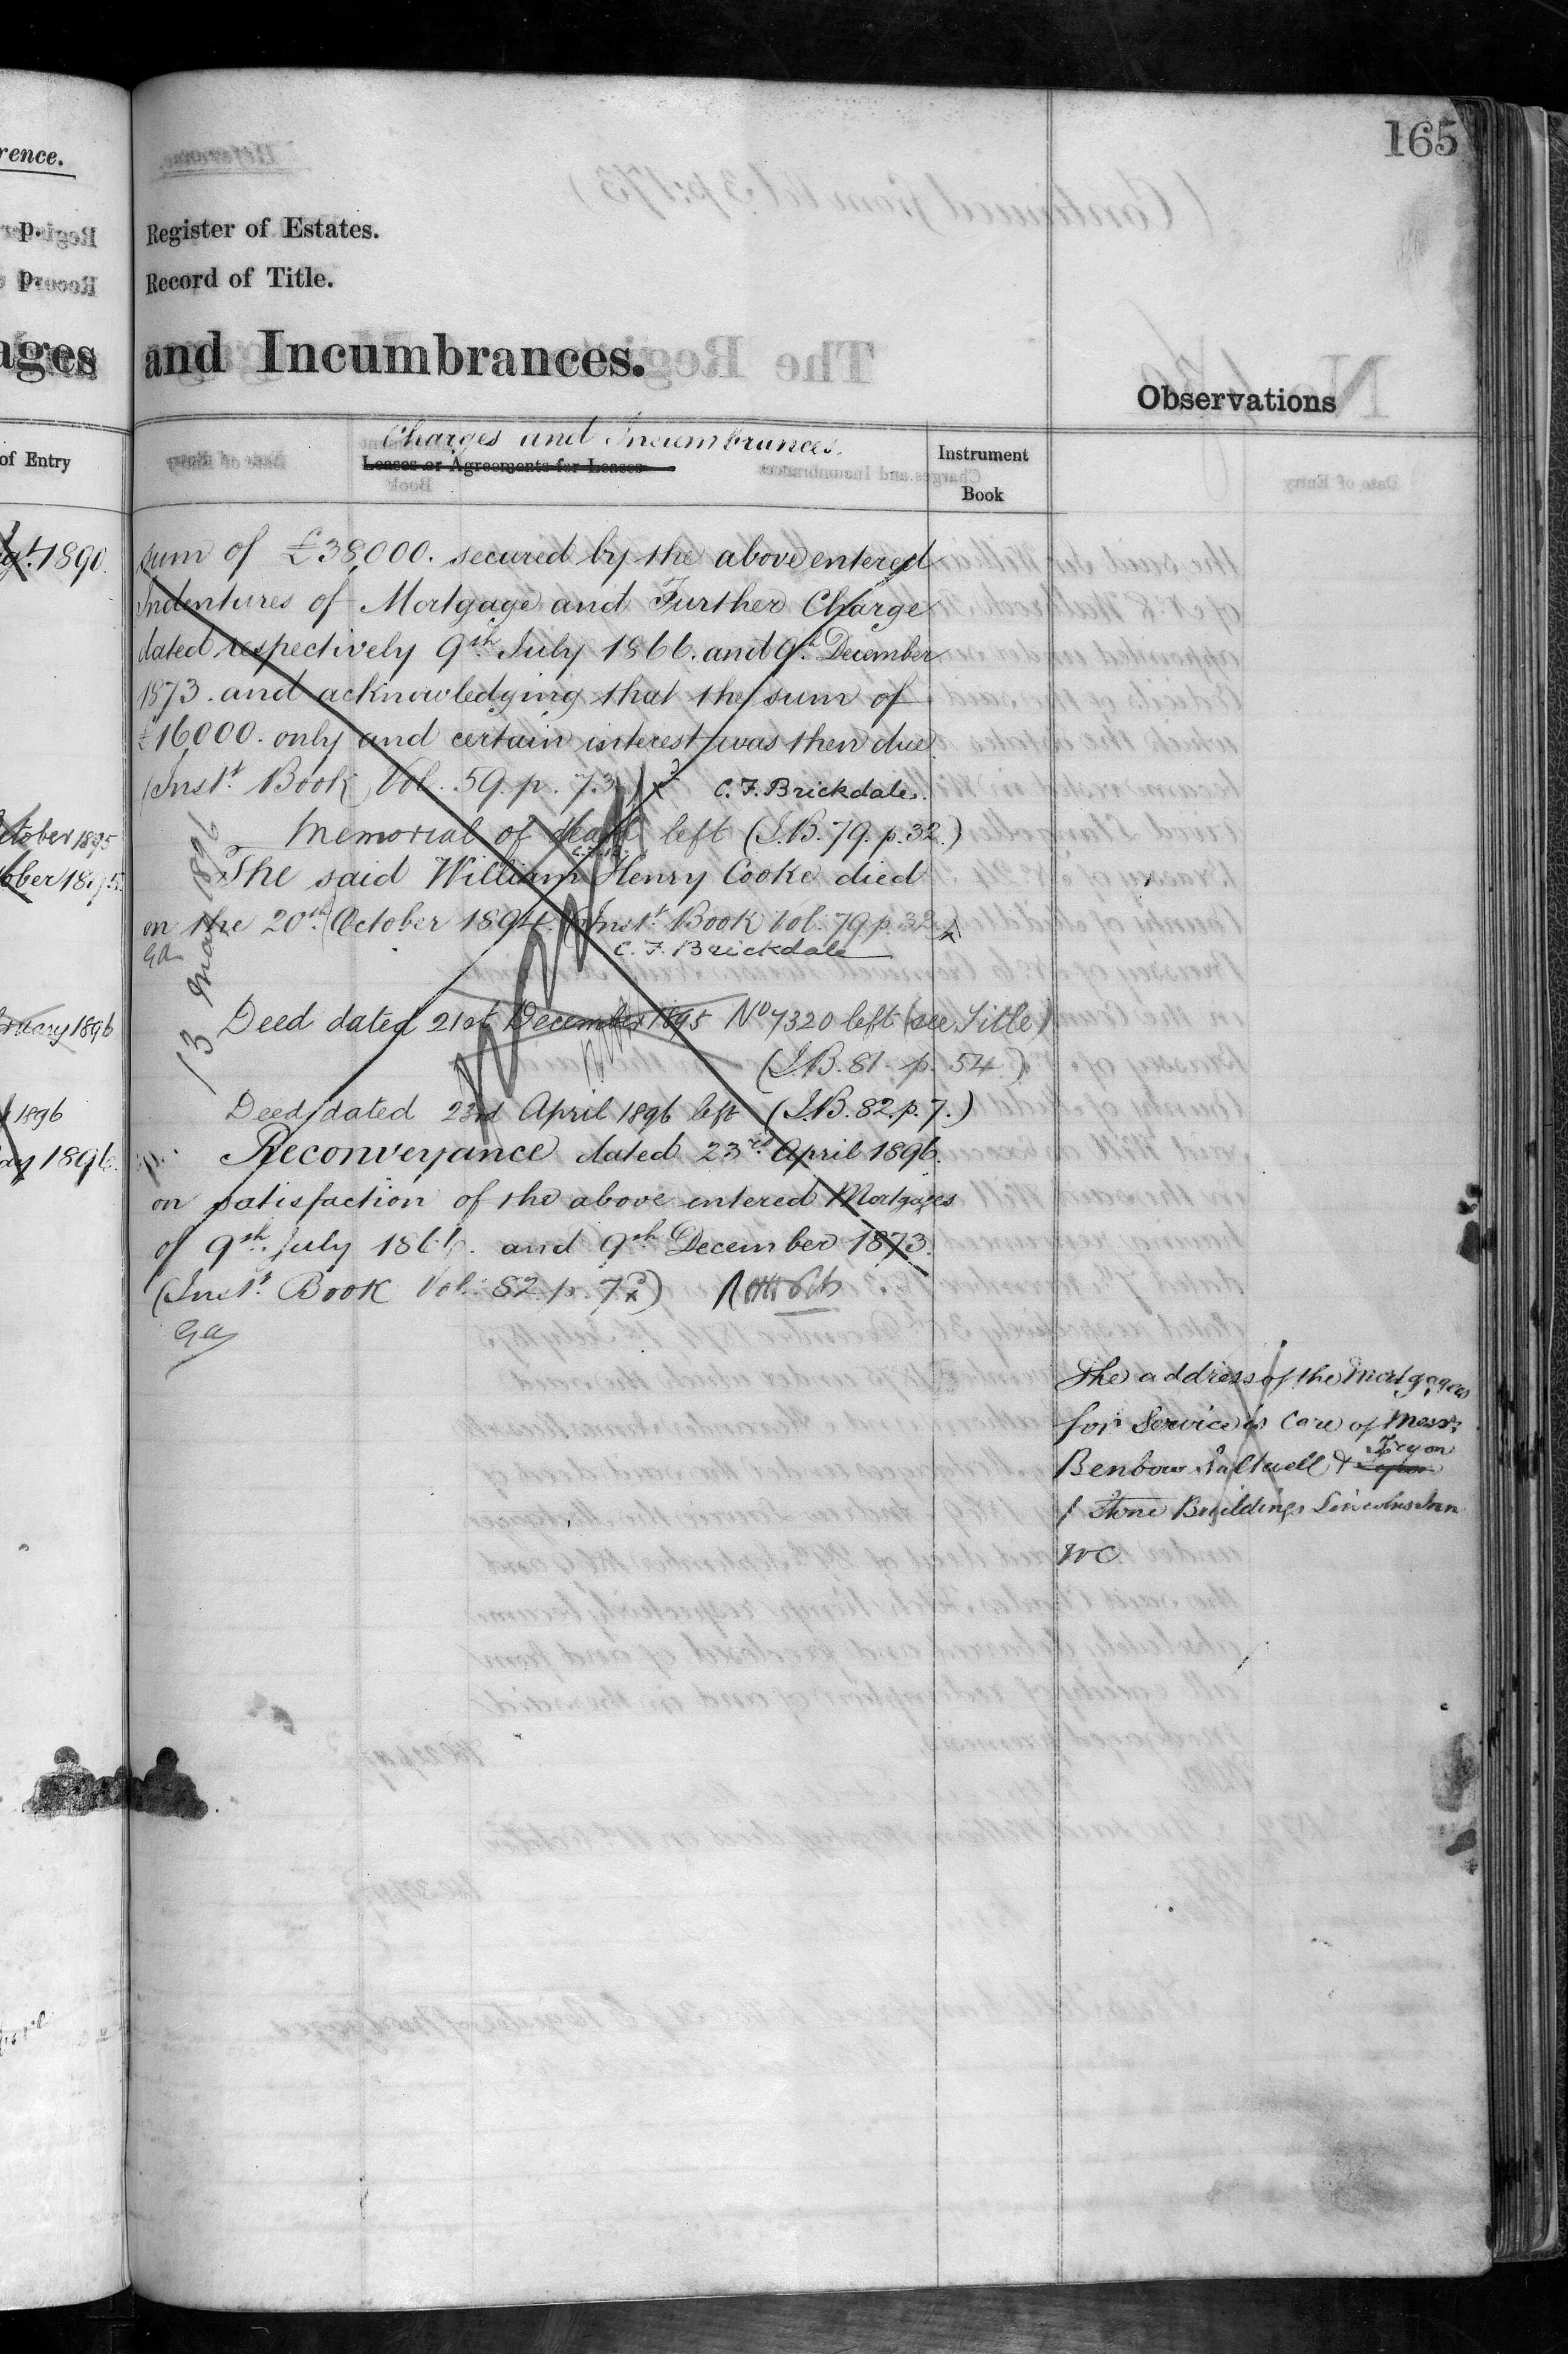 165
rence.
p.
p.
ages
of Entry
1890.
October 1895
ober 1895
ruary 1896
1896
ay 1896.
Register of Estates.
Record of Title.
and Incumbrances.
Observations
Charges and Incumbrances.
Leases or Agreements for Leases
Instrument
Book
sum of £38,000. secured by the above entered
Indentures of Mortgage and Further Charge
dated respectively 9th July 1866. and 9th December
1873. and acknowledging that the sum of
£16000. only and certain interest was then due.
(Inst. Book Vol. 59. p. 73) C. F. Brickdale.
Memorial of death left (I.B. 79. p. 32.)
The said William Henry Cooke died
on the 20th October 1894. (Inst. Book Vol. 79 p. 32
C. F. Brickdale
13 May 1896
Deed dated 21st December 1895 No 7320 left (see Title)
(I.B. 81. p. 54.)
Deed dated 23rd April 1896 left (I.B. 82. p. 7.)
Reconveyance dated 23rd April 1896.
on satisfaction of the above entered Mortgages
of 9th July 1866. and 9th December 1873.
(Inst. Book Vol. 82. p. 7)
The address of the Mortgagees
for Service is Care of Messrs
Benbow Saltwell & Tryon
1 Stone Buildings Lincolns Inn
WC.